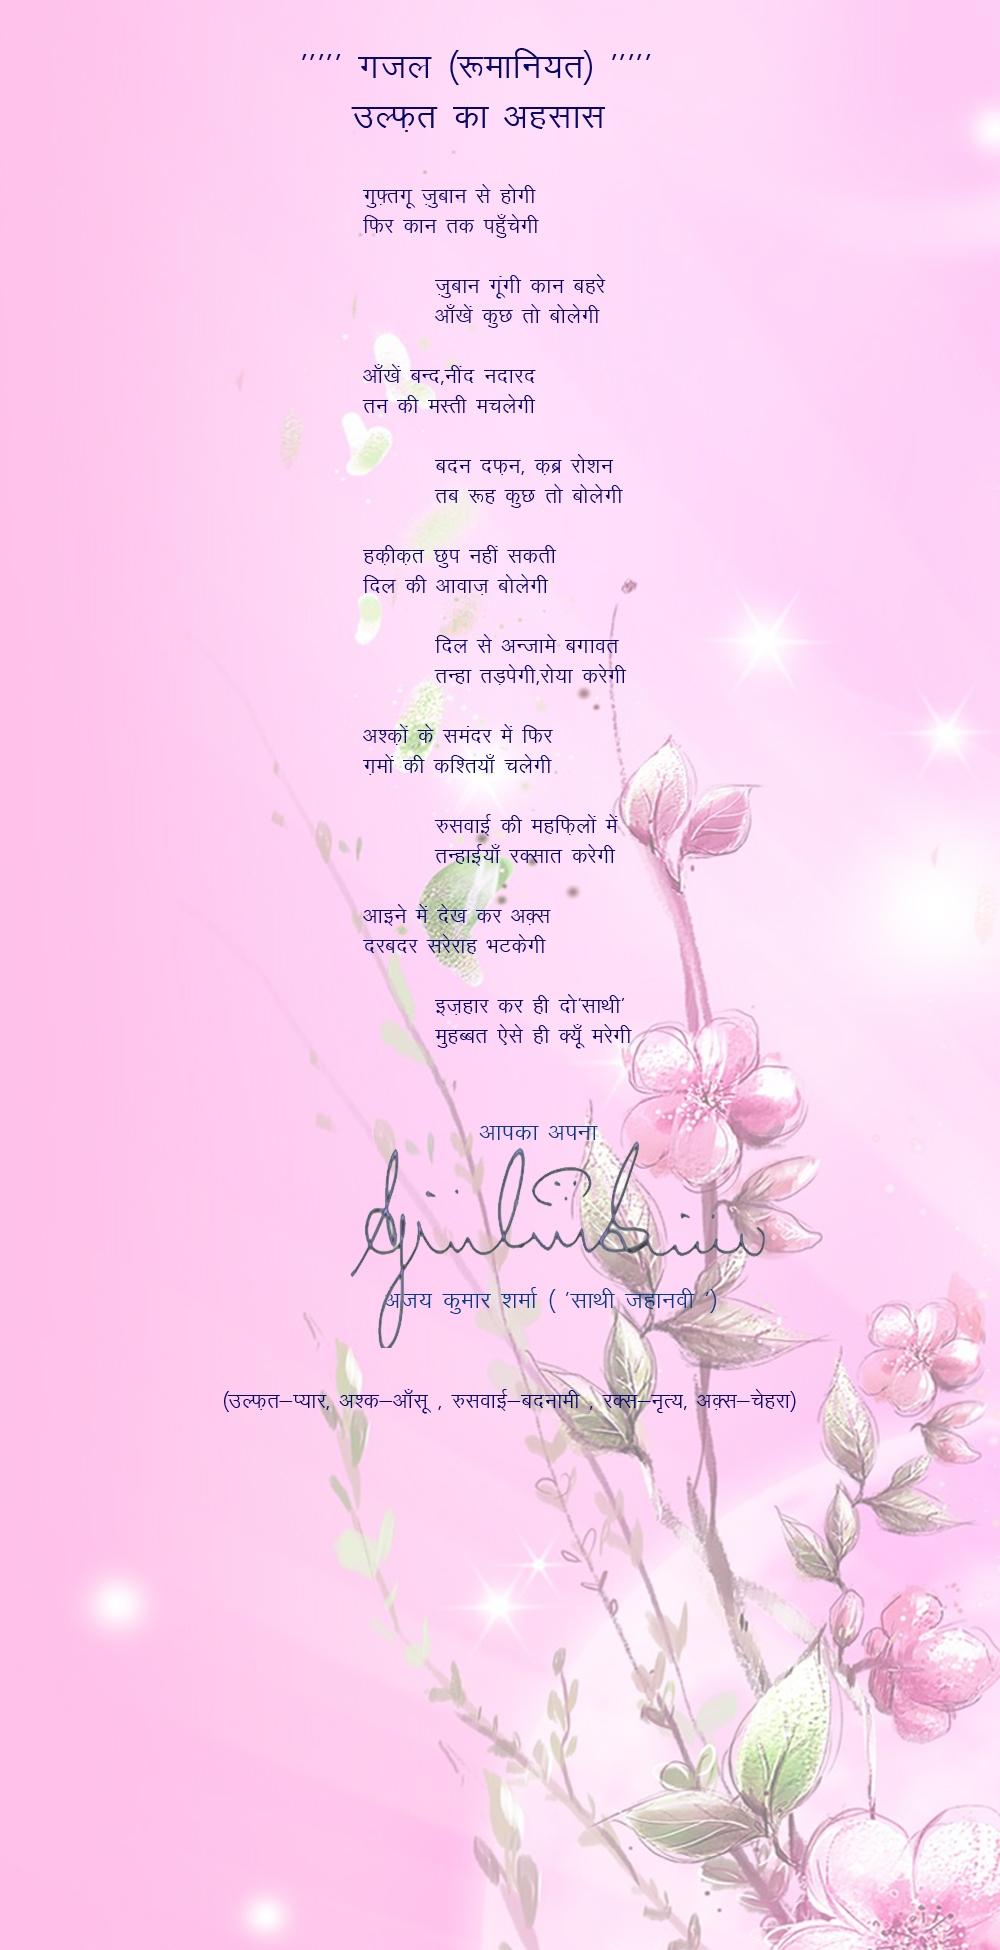 ’’’’’ गजल (रूमानियत) ’’’’’
उल्फ़त का अहसास
गुफ़्तगू ज़ुबान से होगी
फ़िर कान तक पहुँचेगी
ज़ुबान गूंगी कान बहरे
आँखें कुछ तो बोलेगी
आँखें बन्द,नींद नदारद
तन की मस्ती मचलेगी
बदन दफ़न, क़ब्र रोशन
तब रूह कुछ तो बोलेगी
हक़ीक़त छुप नहीं सकती
दिल की आवाज़ बोलेगी
दिल से अन्जामे बगावत
तन्हा तड़पेगी,रोया करेगी
अश्क़ों के समंदर में फिर
ग़मों की कश्तियाँ चलेगी
रुसवाई की महफ़िलों में
तन्हाईयाँ रक्सात करेगी
आइने में देख कर अक़्स
दरबदर सरेराह भटकेगी
इज़हार कर ही दो‘साथी’
मुहब्बत ऐसे ही क्यूँ मरेगी
आपका अपना
अजय कुमार शर्मा ( ’साथी जहानवी ’)
(उल्फ़त–प्यार, अश्क–आँसू , रुसवाई–बदनामी , रक्स–नृत्य, अक़्स–चेहरा)